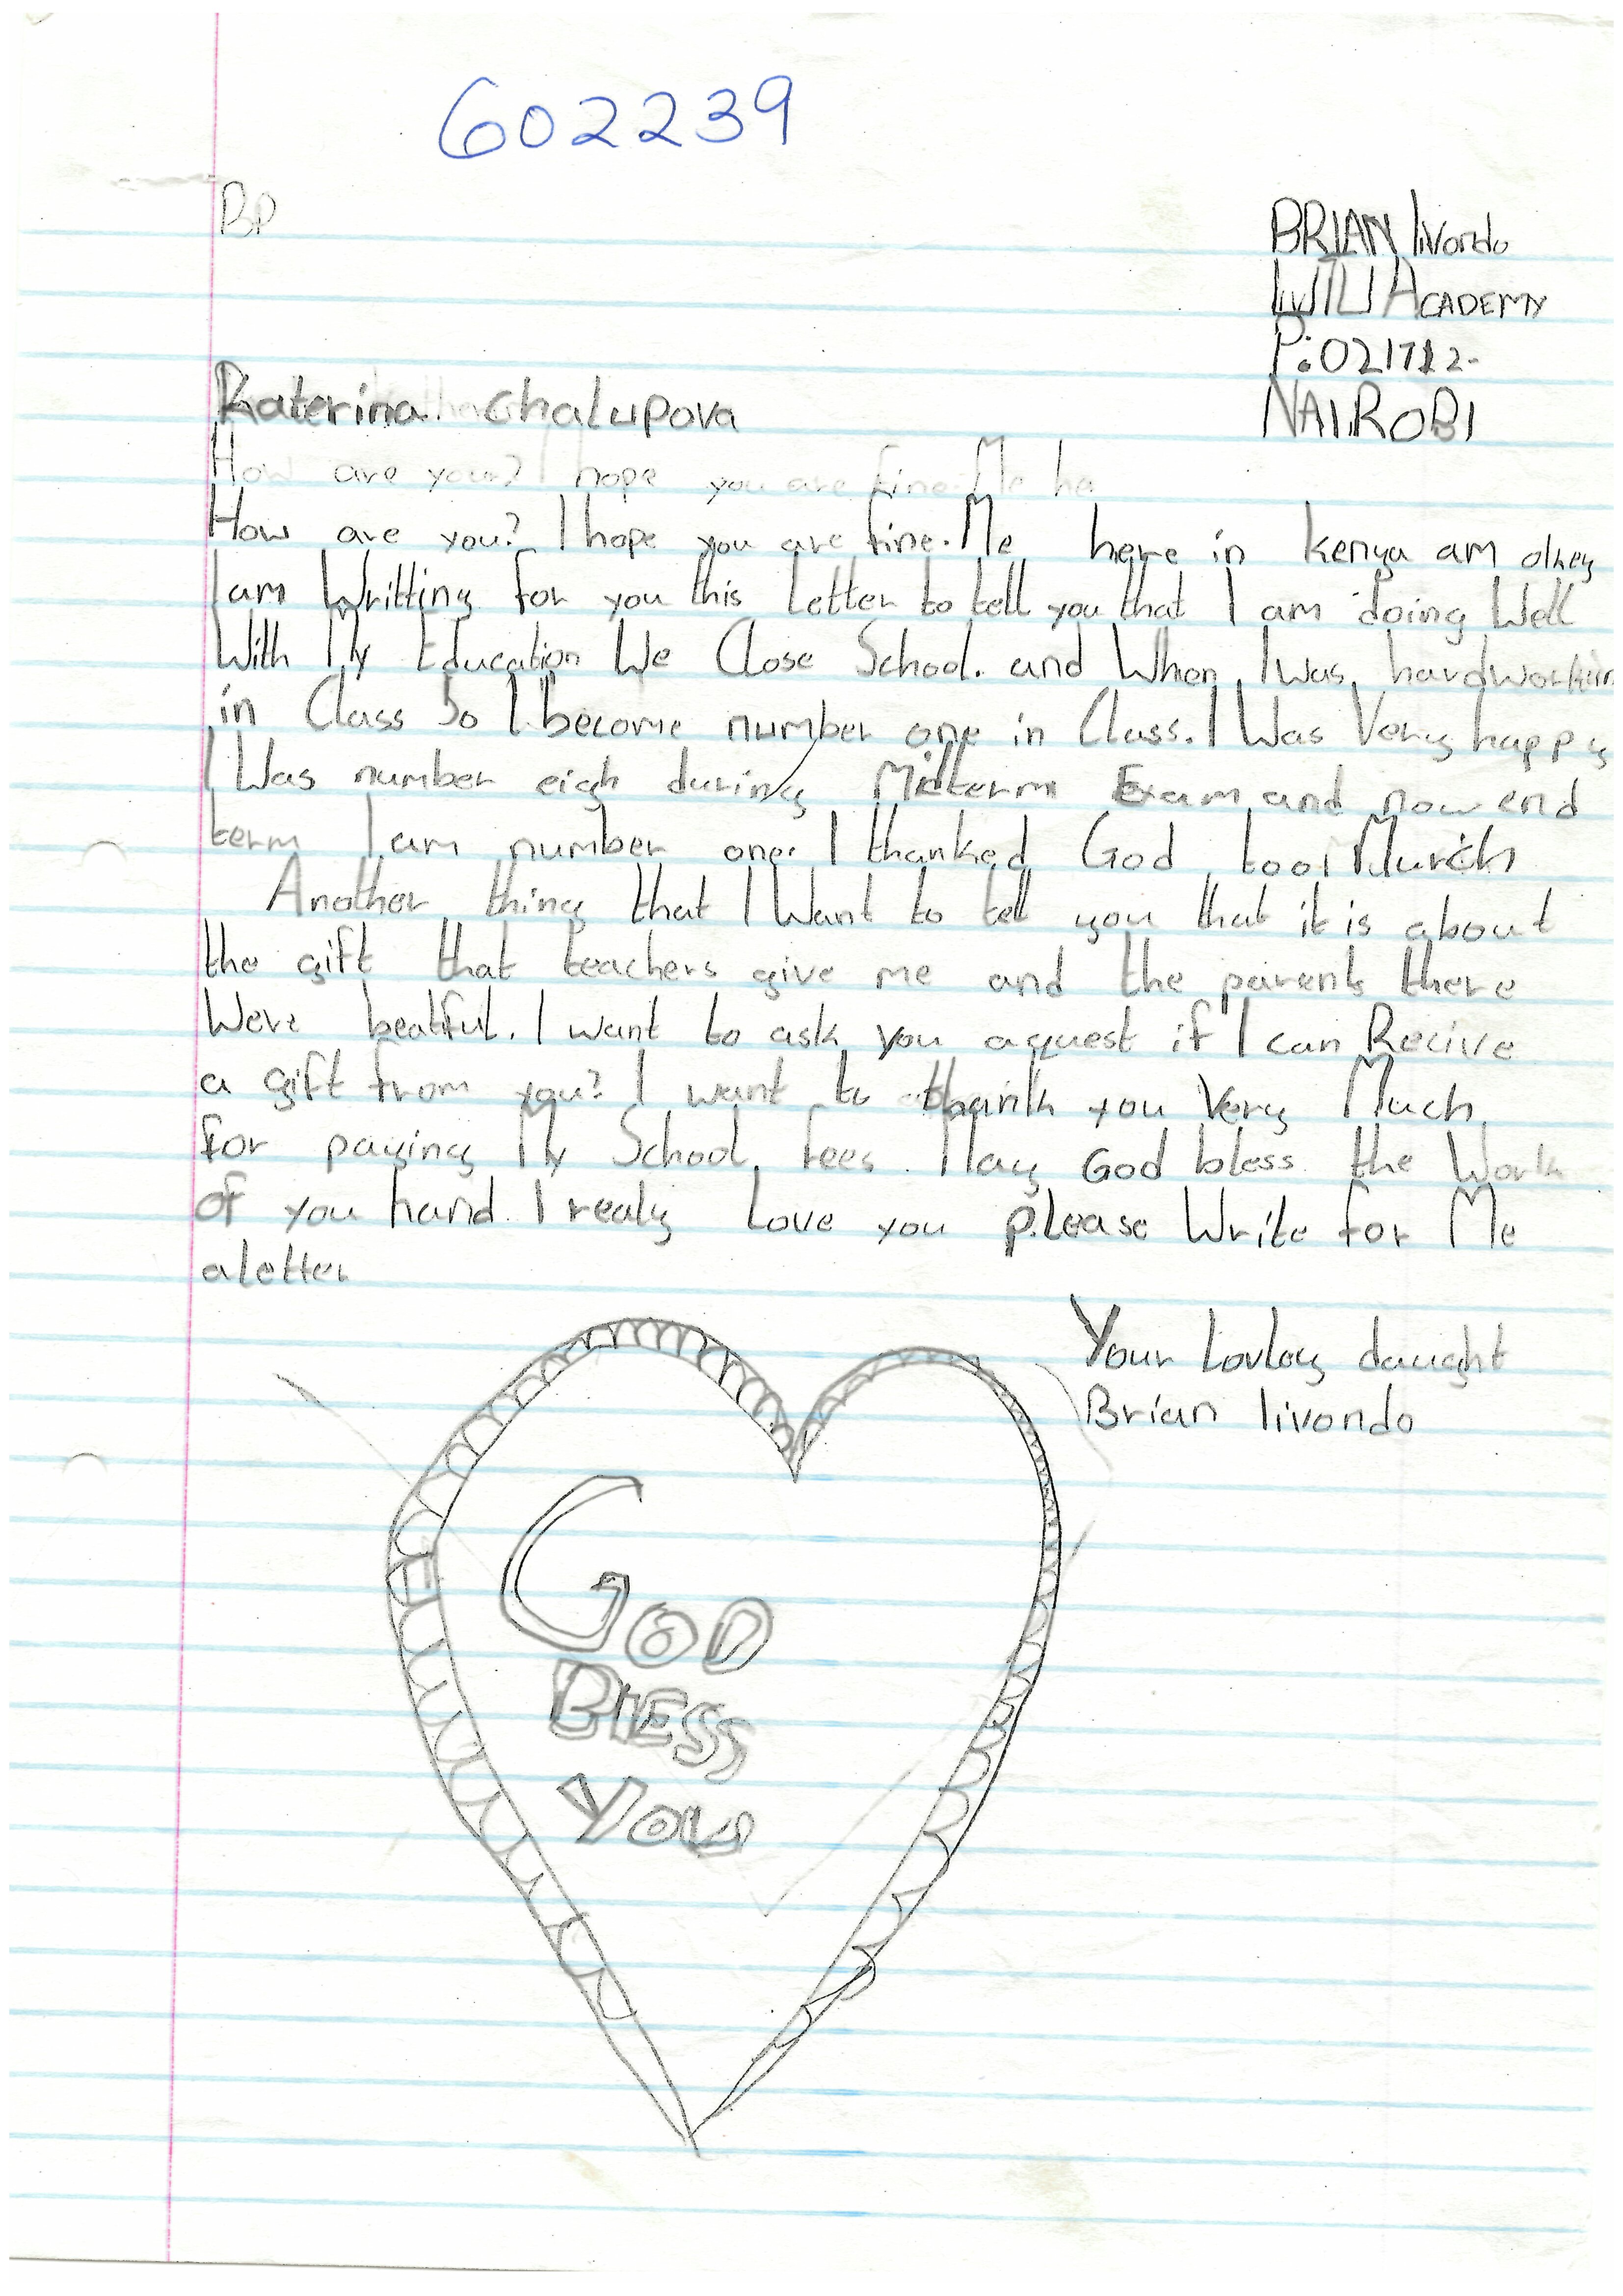 602239
BP
BRIAN livondo
LIWILI ACADEMY
P:021712-
NAIROBI
Katerina Chalupova
How are your? I hope you are fine. Me ha
How are you? I hope you are fine. Me here in kenya am okey
I am Writting for you this Letter to tell you that I am doing Well
With My Education We Close School. and When I was hardworkin
in Class So I become number one in Class. I Was Very happy
I Was number eigh during Midterm Exam and now end
term I am number one. I thanked God too Murch
Another thing that I Want to tell you that it is about
the gift that teachers give me and the parents there
Were beatful. I want to ask you aquest if I can Recive
a gift from you? I want to thank you Very Much
for paying My School fees. May God bless the Work
of you hand. I realy Love you please Write for Me
aletter
Your Lovley daught
Brian livondo
GOD
BlESS
YOU